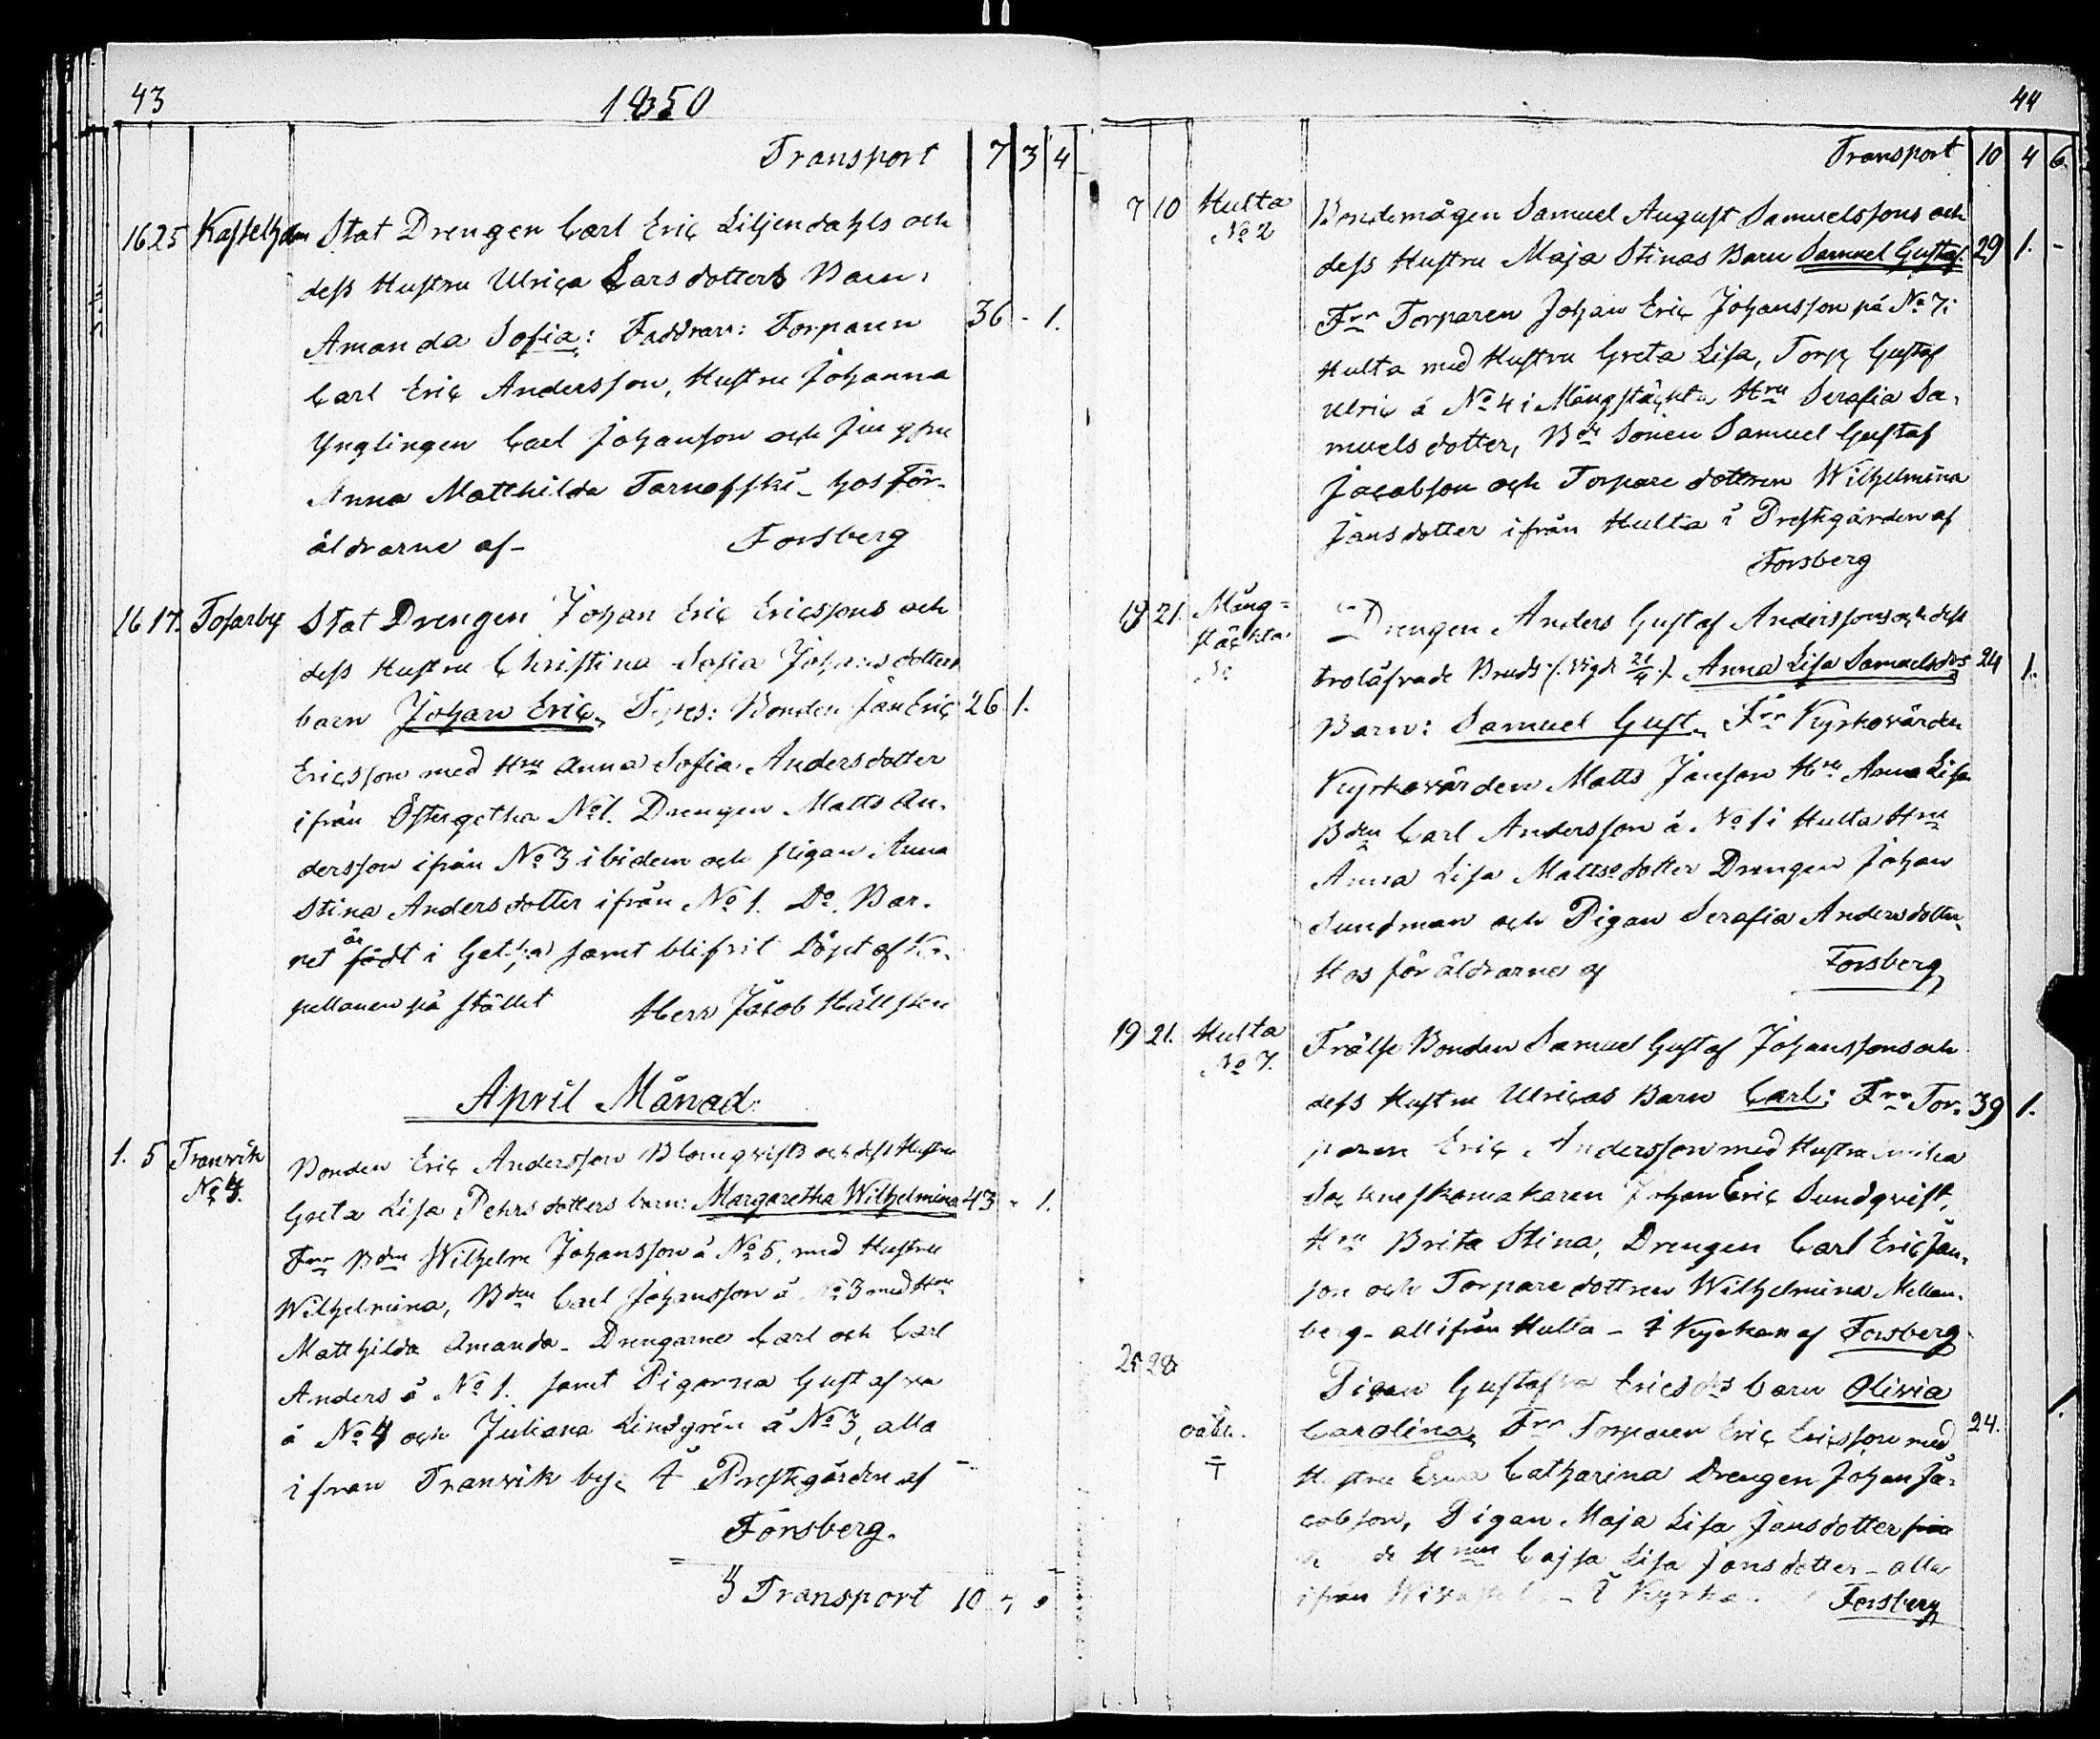 43
1850
Transport 7 3 4
16 25 Kastelholm Stat Drengen Carl Eric Liljendahls och
dess Hustru Ulrica Larsdotters Barn,
Amanda Sofia: Faddrar: Torparen 36 - 1.
Carl Eric Andersson, Hustru Johanna
Ynglingen Carl Johansson och Jungfru
Anna Matthilda Tarnoffski - hos För-
äldrarne af - Forsberg
16 17. Tosarby Stat Drengen Johan Eric Ericssons och
dess Hustru Christina Sofia Johansdotters
barn Johan Eric, Testes: Bonden Jan Eric 26 1.
Ericsson med Hru Anna Sofia Andersdotter
ifrån Östergetha No 1. Drengen Matts An-
dersson ifrån No 3 ibidem och pigan Anna
Stina Andersdotter ifrån No 1. Do. Bar-
net är födt i Getha samt blifvit Döpt af Ka-
pellanen på stället Herr Jacob Hällsten
April Månad.
1. 5 Tranvik Bonden Eric Andersson Blomqvists och dess Hustru
No 4. Greta Lisa Pehrsdotters barn: Margaretha Wilhelmina 43 - 1.
Frr Bdn Wilhelm Johansson å No 5, med Hustru
Wilhelmina, Bdn Carl Johansson å No 3 med Hru
Matthilda Amanda - Drengarne Carl och Carl
Anders å No 1. samt Pigorna Gustafva
å No 4 och Juliana Lindgrén å No 3, alla
ifrån Tranvik by, I Prestgården af
Forsberg.
Transport 10
44
Transport 10 4 6.
7 10 Hulta Bondemågen Samuel August Samuelssons och
No 2 dess Hustru Maja Stinas Barn Samuel Gustaf. 29 1. -
Frr Torparen Johan Eric Johansson på No 7.
Hulta med Hustru Greta Lisa, Torp Gustaf
Ulric å No 4 i Mångstäckta Hru Serafia Sa-
muelsdotter, Bde Sonen Samuel Gustaf
Jacobson och Torpare dottren Wilhelmina
Jansdotter ifrån Hulta i Prestgården af
Forsberg
19 21. Mång= Drengen Anders Gustaf Anderssons och dess
stäckta trolofvade Bruds (: Vigde 21/4 :) Anna Lisa Samuelsdrs 24 1.
Barn: Samuel Gust, Frr Kyrkovärden
Kyrkovärden Matts Janson Hru Anna Lisa
Bdn Carl Andersson å No 1 i Hulta Hru
Anna Lisa Mattsdotter Drengen Johan
Sundman och Pigan Serafia Andersdotter,
Hos föräldrarne af Forsberg
19 21. Hulta Frälse Bonden Samuel Gustaf Johanssons och
No 7. dess Hustru Ulricas Barn Carl: Frr Tor- 39 1.
paren Eric Andersson med Hustru
Sockneskomakaren Johan Eric Sundqvist,
Hru Brita Stina, Drengen Carl Eric Jan-
son och Torpare dottren Wilhelmina Mellan-
berg - all ifrån Hulta - I Kyrkan af Forsberg
25 28 Pigan Gustafva Ericsdrs barn Olivia
oäkt. Carolina, Frr Torparen Eric Ericsson med 24. 1.
Hustru Catharina Drengen Johan Ja-
cobson, Pigan Maja Lisa Jansdotter
Cajsa Lisa Jansdotter - alla
ifrån - I Kyrkan Forsberg